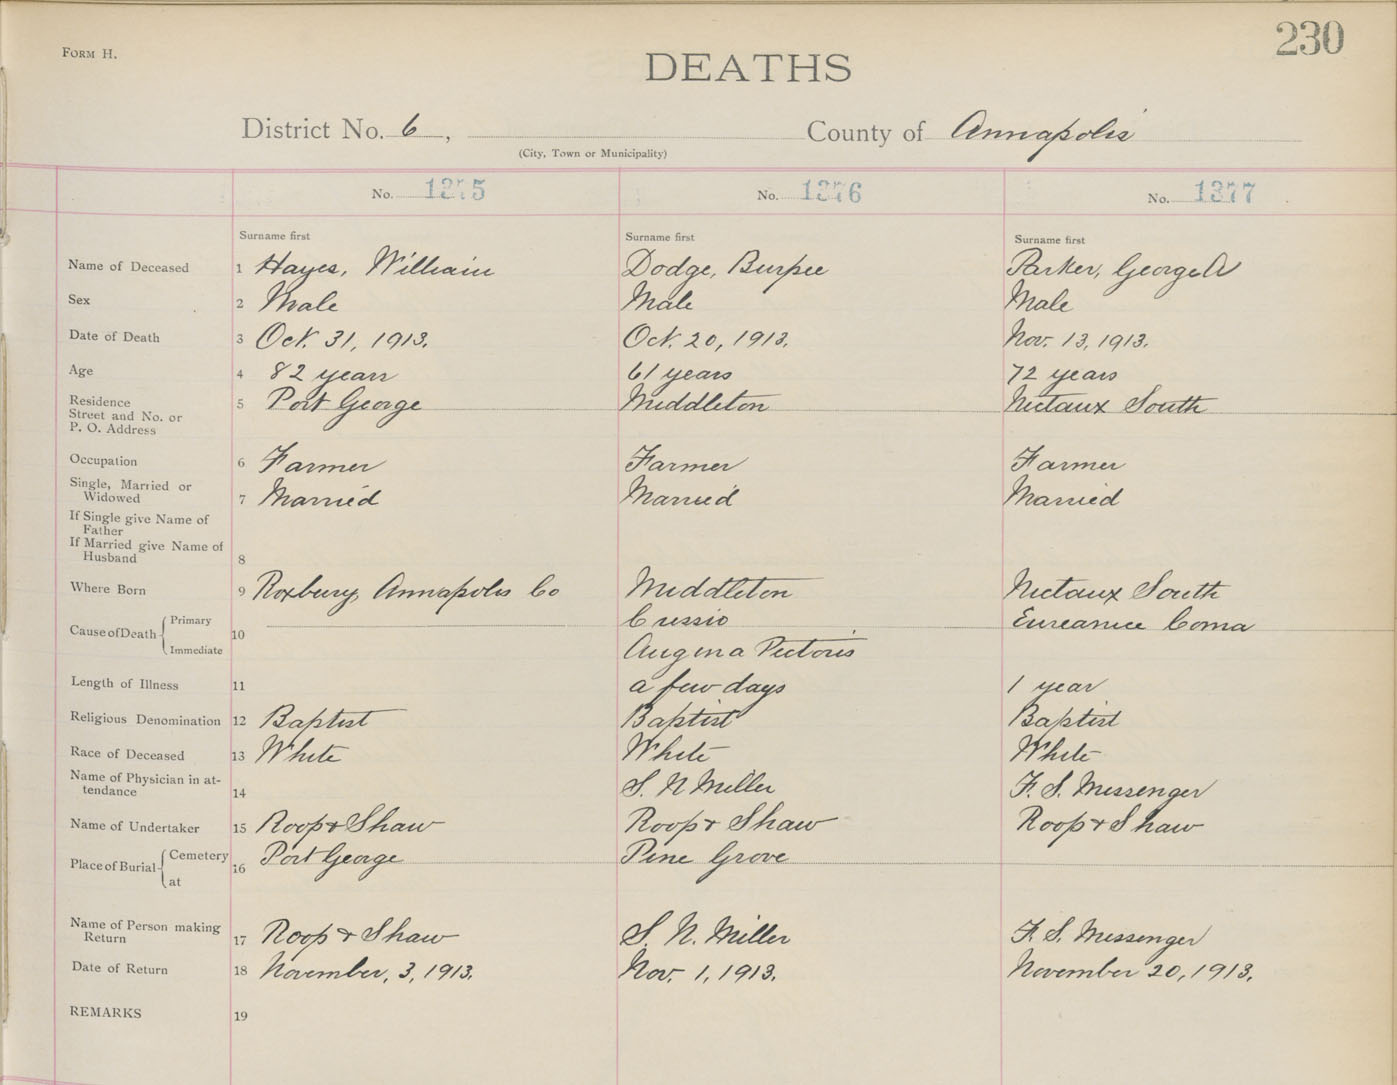 FORM H.
230
DEATHS
District No. 6, County of Annapolis
(City, Town or Municipality)
No. 1375 No. 1376 No. 1377
Surname first Surname first Surname first
Name of Deceased 1 Hayes, William Dodge, Burpee Parker, George A
Sex 2 Male Male Male
Date of Death 3 Oct. 31, 1913. Oct. 20, 1913. Nov. 13, 1913.
Age 4 82 years 61 years 72 years
Residence 5 Port George Middleton Nictaux South
Street and No. or
P. O. Address
Occupation 6 Farmer Farmer Farmer
Single, Married or
Widowed 7 Married Married Married
If Single give Name of
Father
If Married give Name of
Husband 8
Where Born 9 Roxbury, Annapolis Co Middleton Nictaux South
Cause of Death { Primary 10 Coma
Immediate Angina Pectoris
Length of Illness 11 a few days 1 year
Religious Denomination 12 Baptist Baptist Baptist
Race of Deceased 13 White White White
Name of Physician in at-
tendance 14 S. N Miller F. S. Messenger
Name of Undertaker 15 Roop & Shaw Roop & Shaw Roop & Shaw
Place of Burial { Cemetery 16 Port George Pine Grove
at
Name of Person making
Return 17 Roop & Shaw S. N. Miller F. S. Messenger
Date of Return 18 November, 3, 1913. Nov. 1, 1913. November 20, 1913.
REMARKS 19